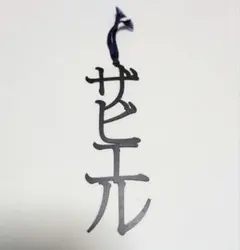 ザビエル